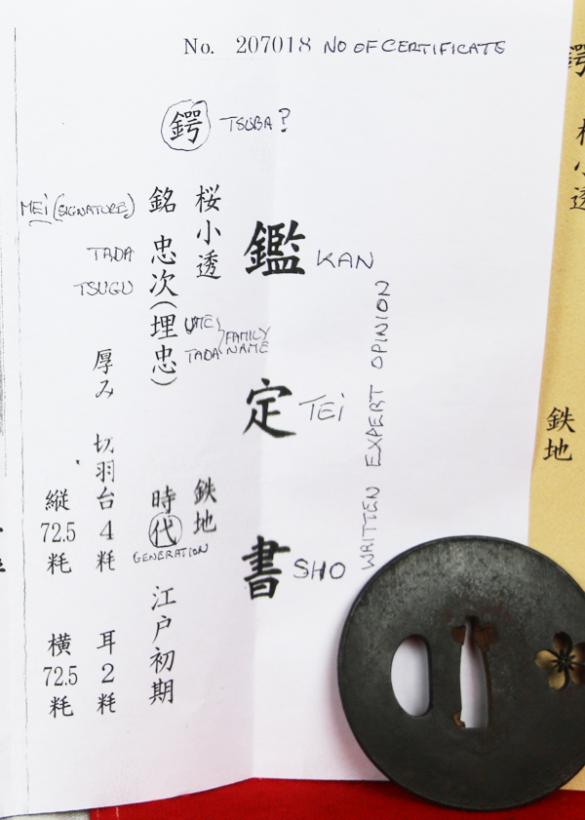 No. 207018 NO OF CERTIFICATE
鍔 TSUBA?
鑑定書
KAN
TEI
SHO
WRITTEN EXPERT OPINION
桜小透 鉄地
銘 忠次(埋忠) 時代 江戸初期
MEI (SIGNATURE)
TADA
TSUGU
UME
TADA
FAMILY
NAME
GENERATION
厚み 切羽台4粍 耳2粍
縦72.5粍 横72.5粍
鉄地